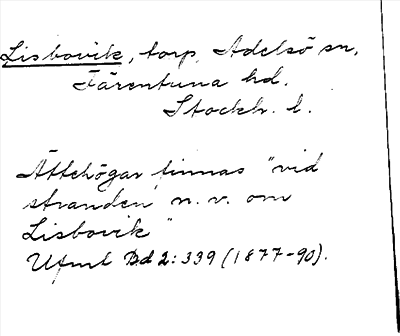 Lisbovik, torp, Adelsö sn,
Färentuna hd.
Stockh. l.
Ättehögar finnas "vid
stranden n. v. om
Lisbovik"
Ufml Bd 2:339 (1877-90).